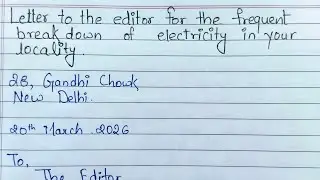 Letter to the editor for the frequent
break down of electricity in your
locality.
28, Gandhi Chowk
New Delhi.
20th March 2026
To,
The Editor